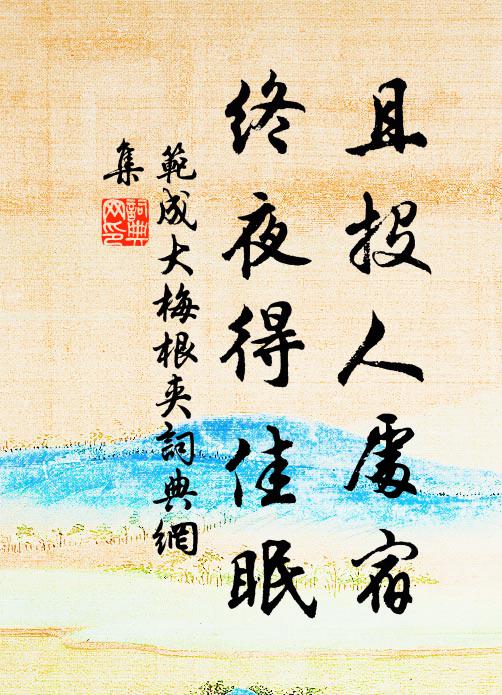 且投人處宿
終夜得佳眠
範成大梅根夾詞典網
集
詞典
网印